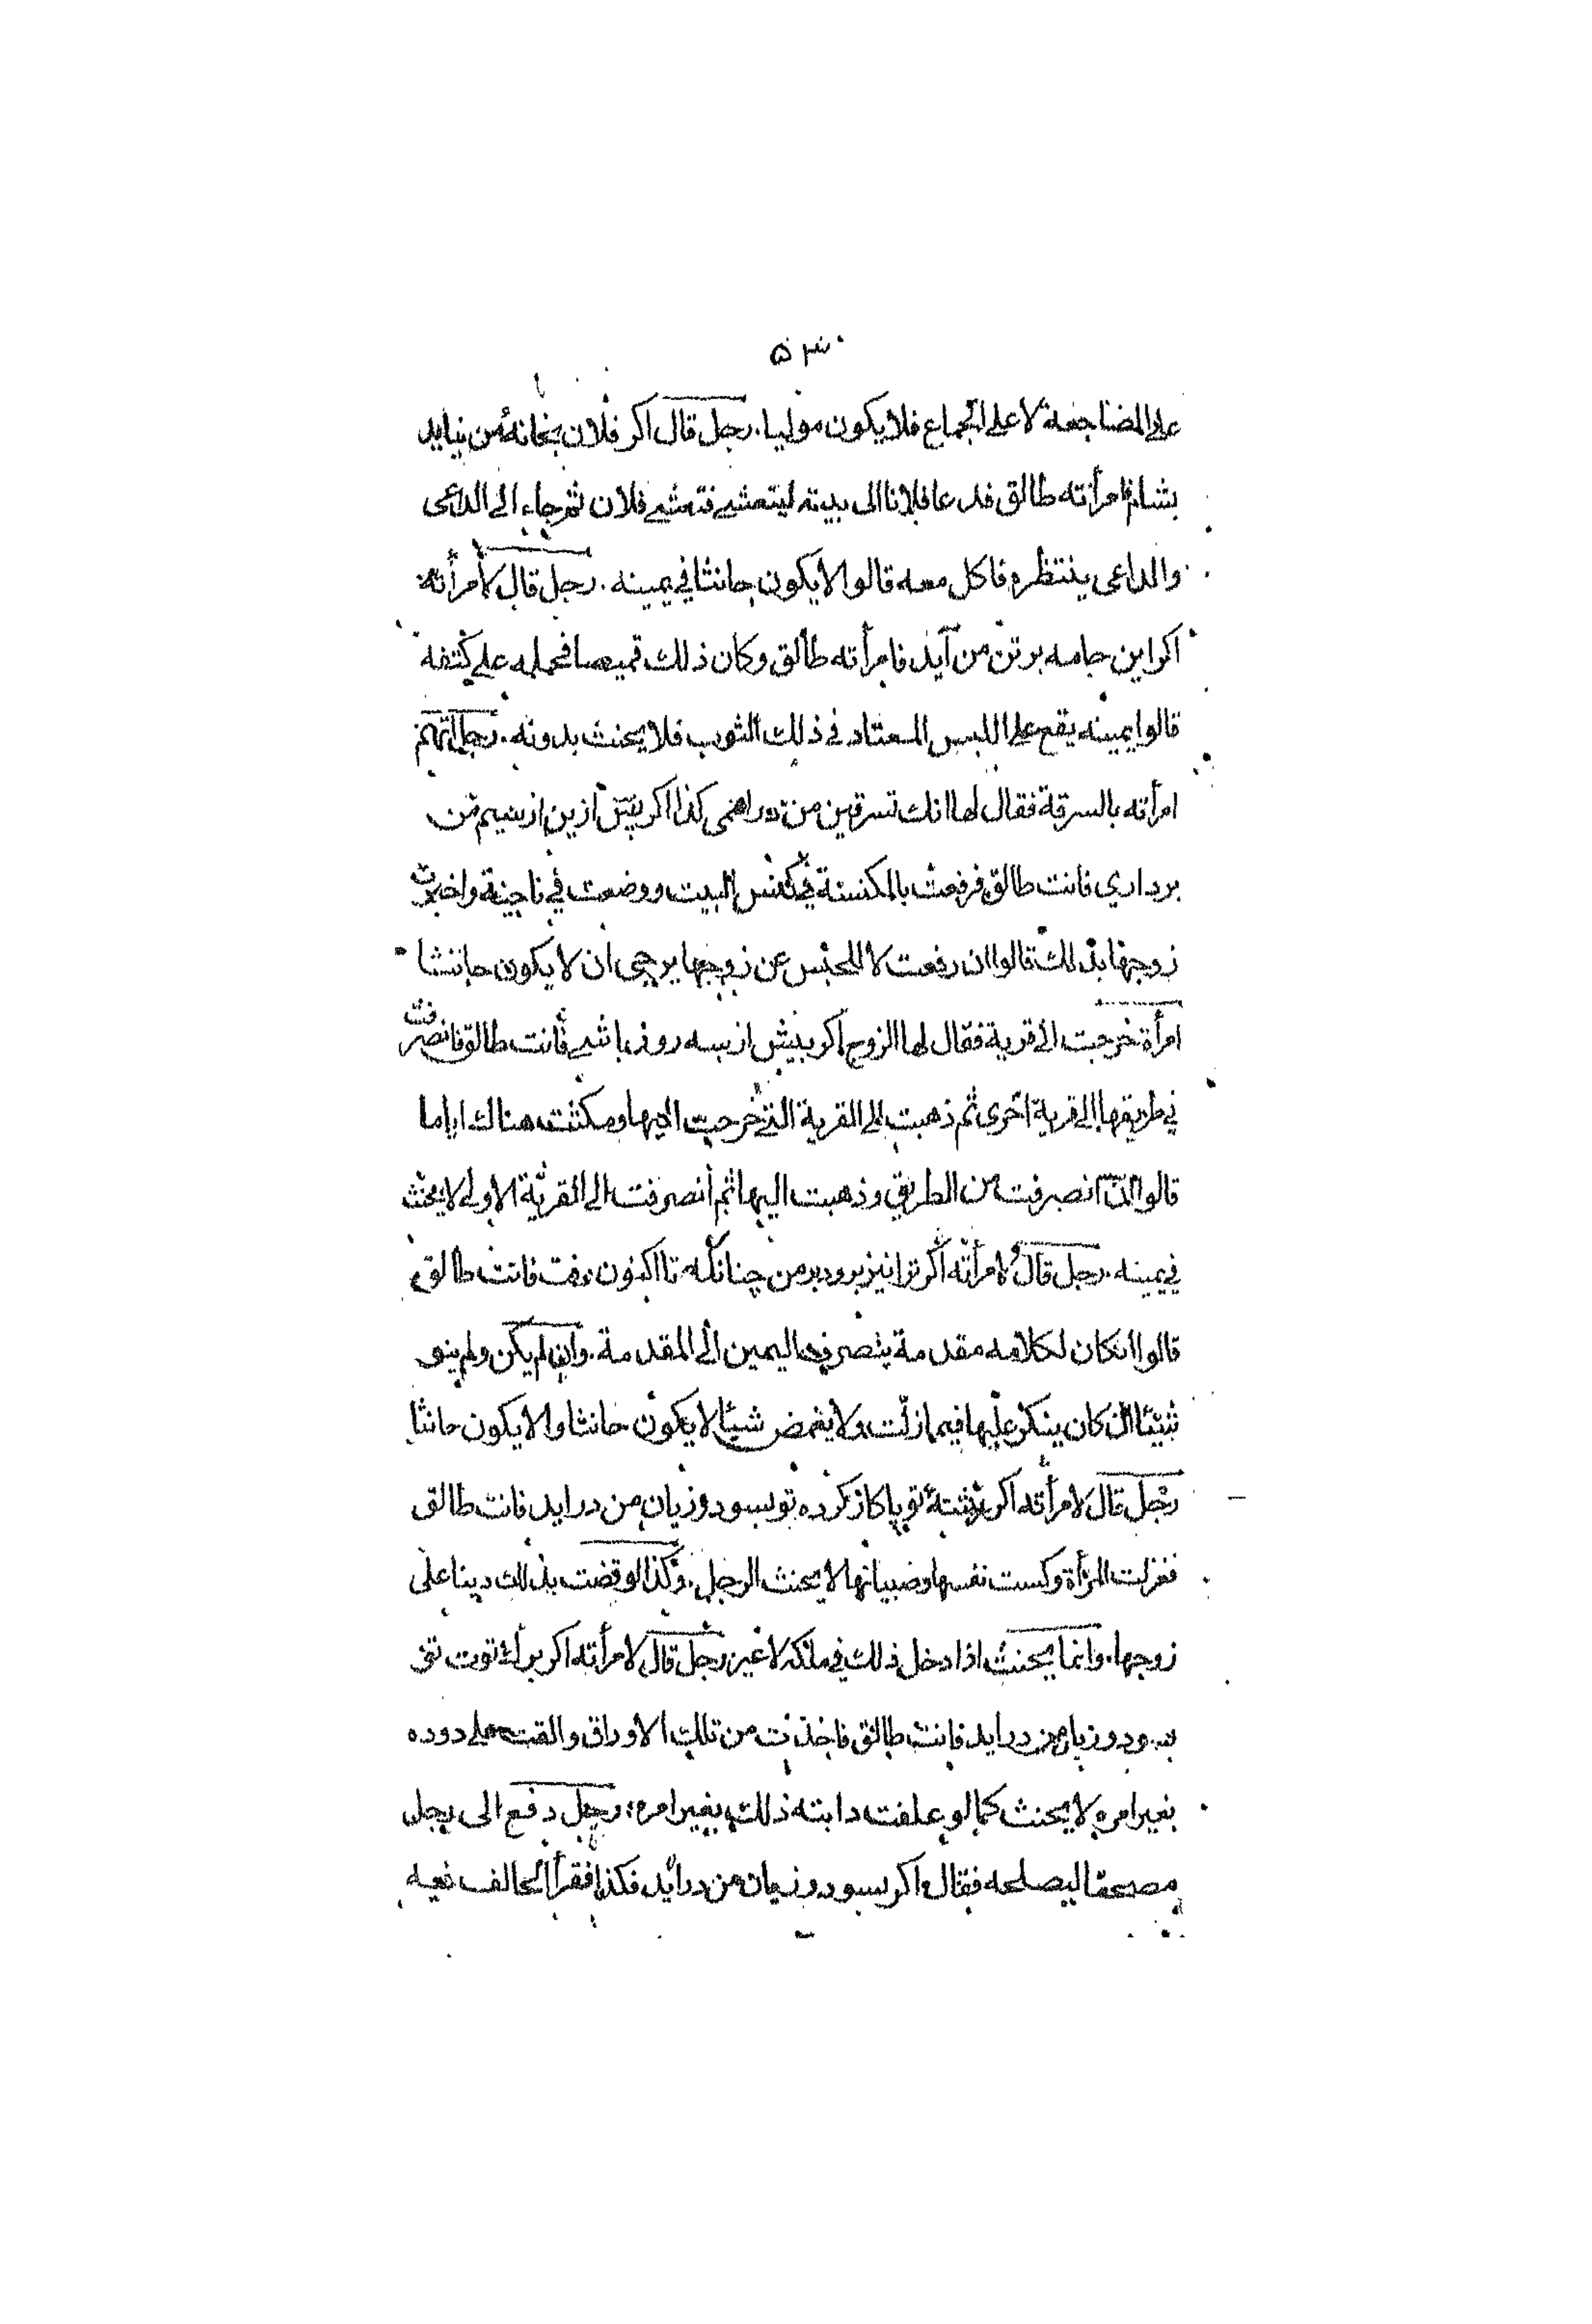 ۵۳۰
على المضاجعة لا على الجماع فلا يكون موليا. رجل قال اكر فلان بخانهٔ من نيايد
بشام فامرأته طالق فدعا فلانا الى بيته ليتعشى فتعشى فلان ثم جاء الى الداعى
والداعى ينتظره فاكل معه قالوا لا يكون حانثا في يمينه. رجل قال لامرأته
اكر اين جامه بر تن من آيد فامرأته طالق وكان ذلك قميصا فحمله على كتفه
قالوا يمينه يقع على اللبس المعتاد في ذلك الثوب فلا يحنث بدونه. رجل اتهم
امرأته بالسرقة فقال لها انك تسرقين من دراهمى كذا اكر پيش ازين از سيم من
بردارى فانت طالق فرفعت بالمكنسة في كنس البيت ووضعت في ناحية واخبرت
زوجها بذلك قالوا ان رفعت لا للحبس عن زوجها يرجى ان لا يكون حانثا
امرأة خرجت الى قرية فقال لها الزوج اكر بيش از سه روز باشى فانت طالق فانصرفت
في طريقها الى قرية اخرى ثم ذهبت الى القرية التي خرجت اليها ومكثت هناك اياما
قالوا ان انصرفت من الطريق وذهبت اليها ثم انصرفت الى القرية الاولى لا يحنث
في يمينه. رجل قال لامرأته اكر ترا نيز برود بر من چنانكه تا اكنون رفت فانت طالق
قالوا انكان لكلامه مقدمة ينصرف اليمين الى المقدمة. وان لم يكن ولم ينو
شيئا ان كان ينكر عليها فيما زلت ولا يغمض شيئا لا يكون حانثا والا يكون حانثا
رجل قال لامرأته اكر رشتهٔ تو يا كار كرده تو بسود وزيان من درايد فانت طالق
فغزلت المرأة وكست نفسها وصبيانها لا يحنث الرجل. وكذا لو قضت بذلك دينا على
زوجها. وانما يحنث اذا دخل ذلك في ملكه لا غير رجل قال لامرأته اكر برك توت تنى
بسود وزيان من درايد فانت طالق فاخذت من تلك الاوراق والقت على دوده
بغير امره لا يحنث كما لو علفت دابته ذلك بغير امره. رجل دفع الى رجل
مصحفا ليصلحه فقال اكر بسود وزيان من درايد فكذا فقرأ الحالف فيه